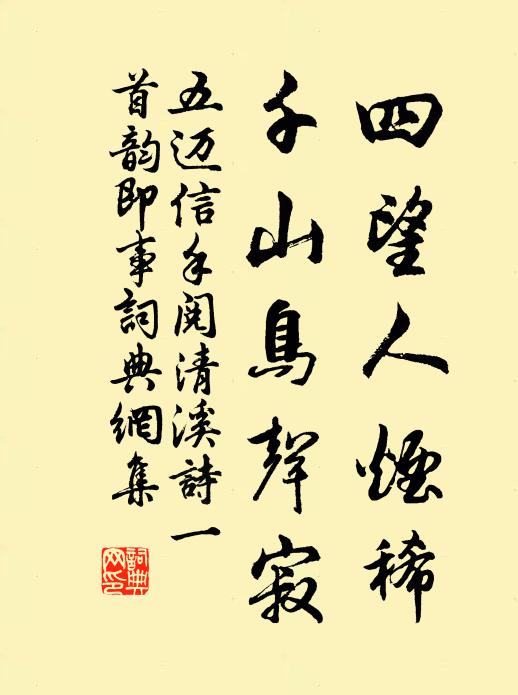 四望人煙稀
千山鳥聲寂
五迈信手閱清溪詩一
首韵即事詞典網集
詞典
网印